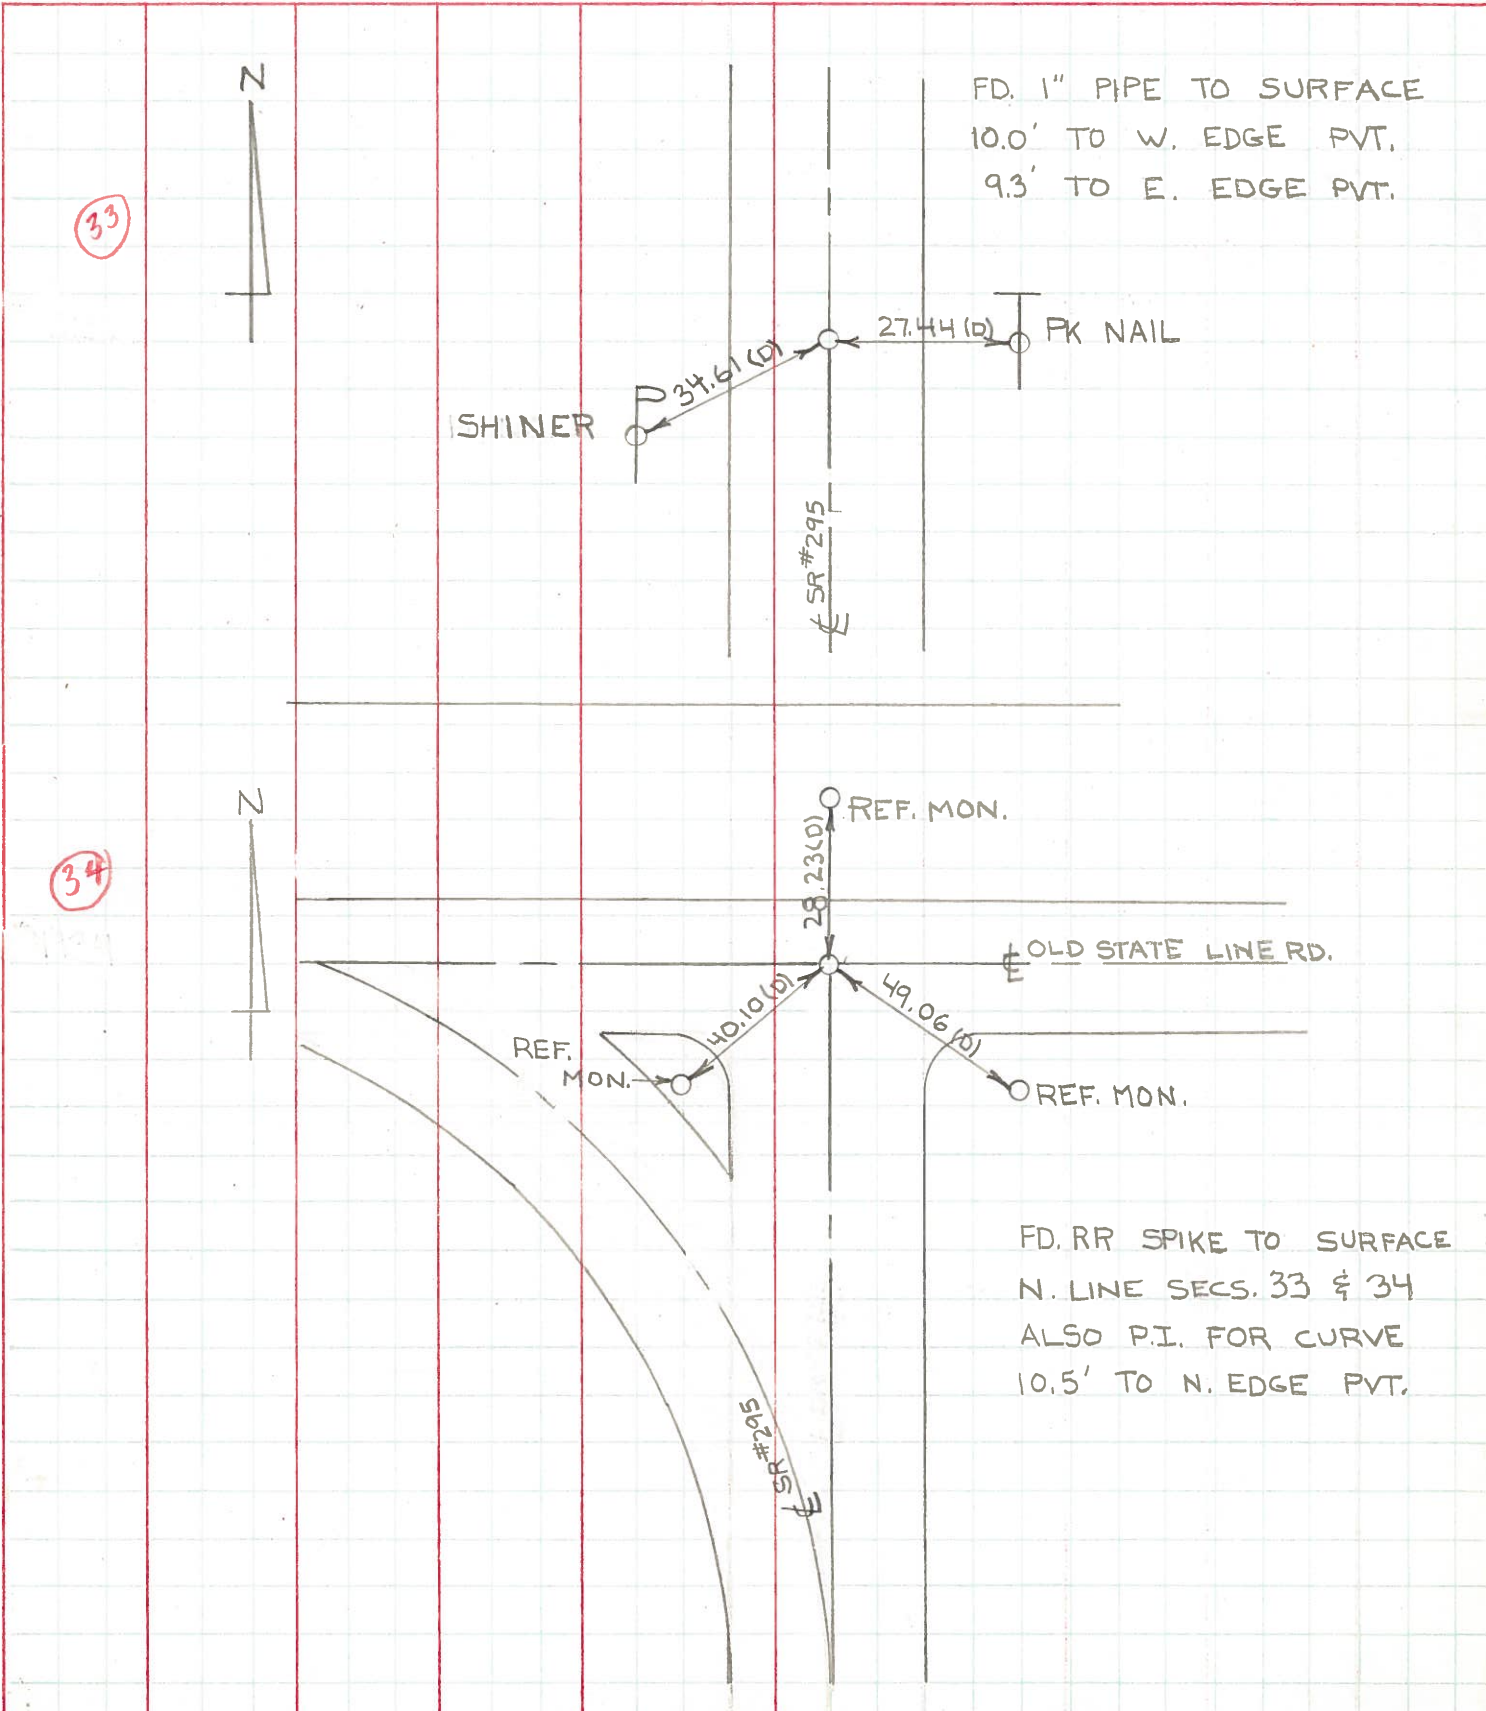 N
FD. 1" PIPE TO SURFACE
10.0' TO W. EDGE PVT.
9.3' TO E. EDGE PVT.
33
27.44 (D)
PK NAIL
34.61 (D)
SHINER
℄ SR #295
N
REF. MON.
28.23 (D)
34
℄ OLD STATE LINE RD.
40.10 (D)
49.06 (D)
REF.
MON.
REF. MON.
FD. RR SPIKE TO SURFACE
N. LINE SECS. 33 & 34
ALSO P.I. FOR CURVE
10.5' TO N. EDGE PVT.
℄ SR #295